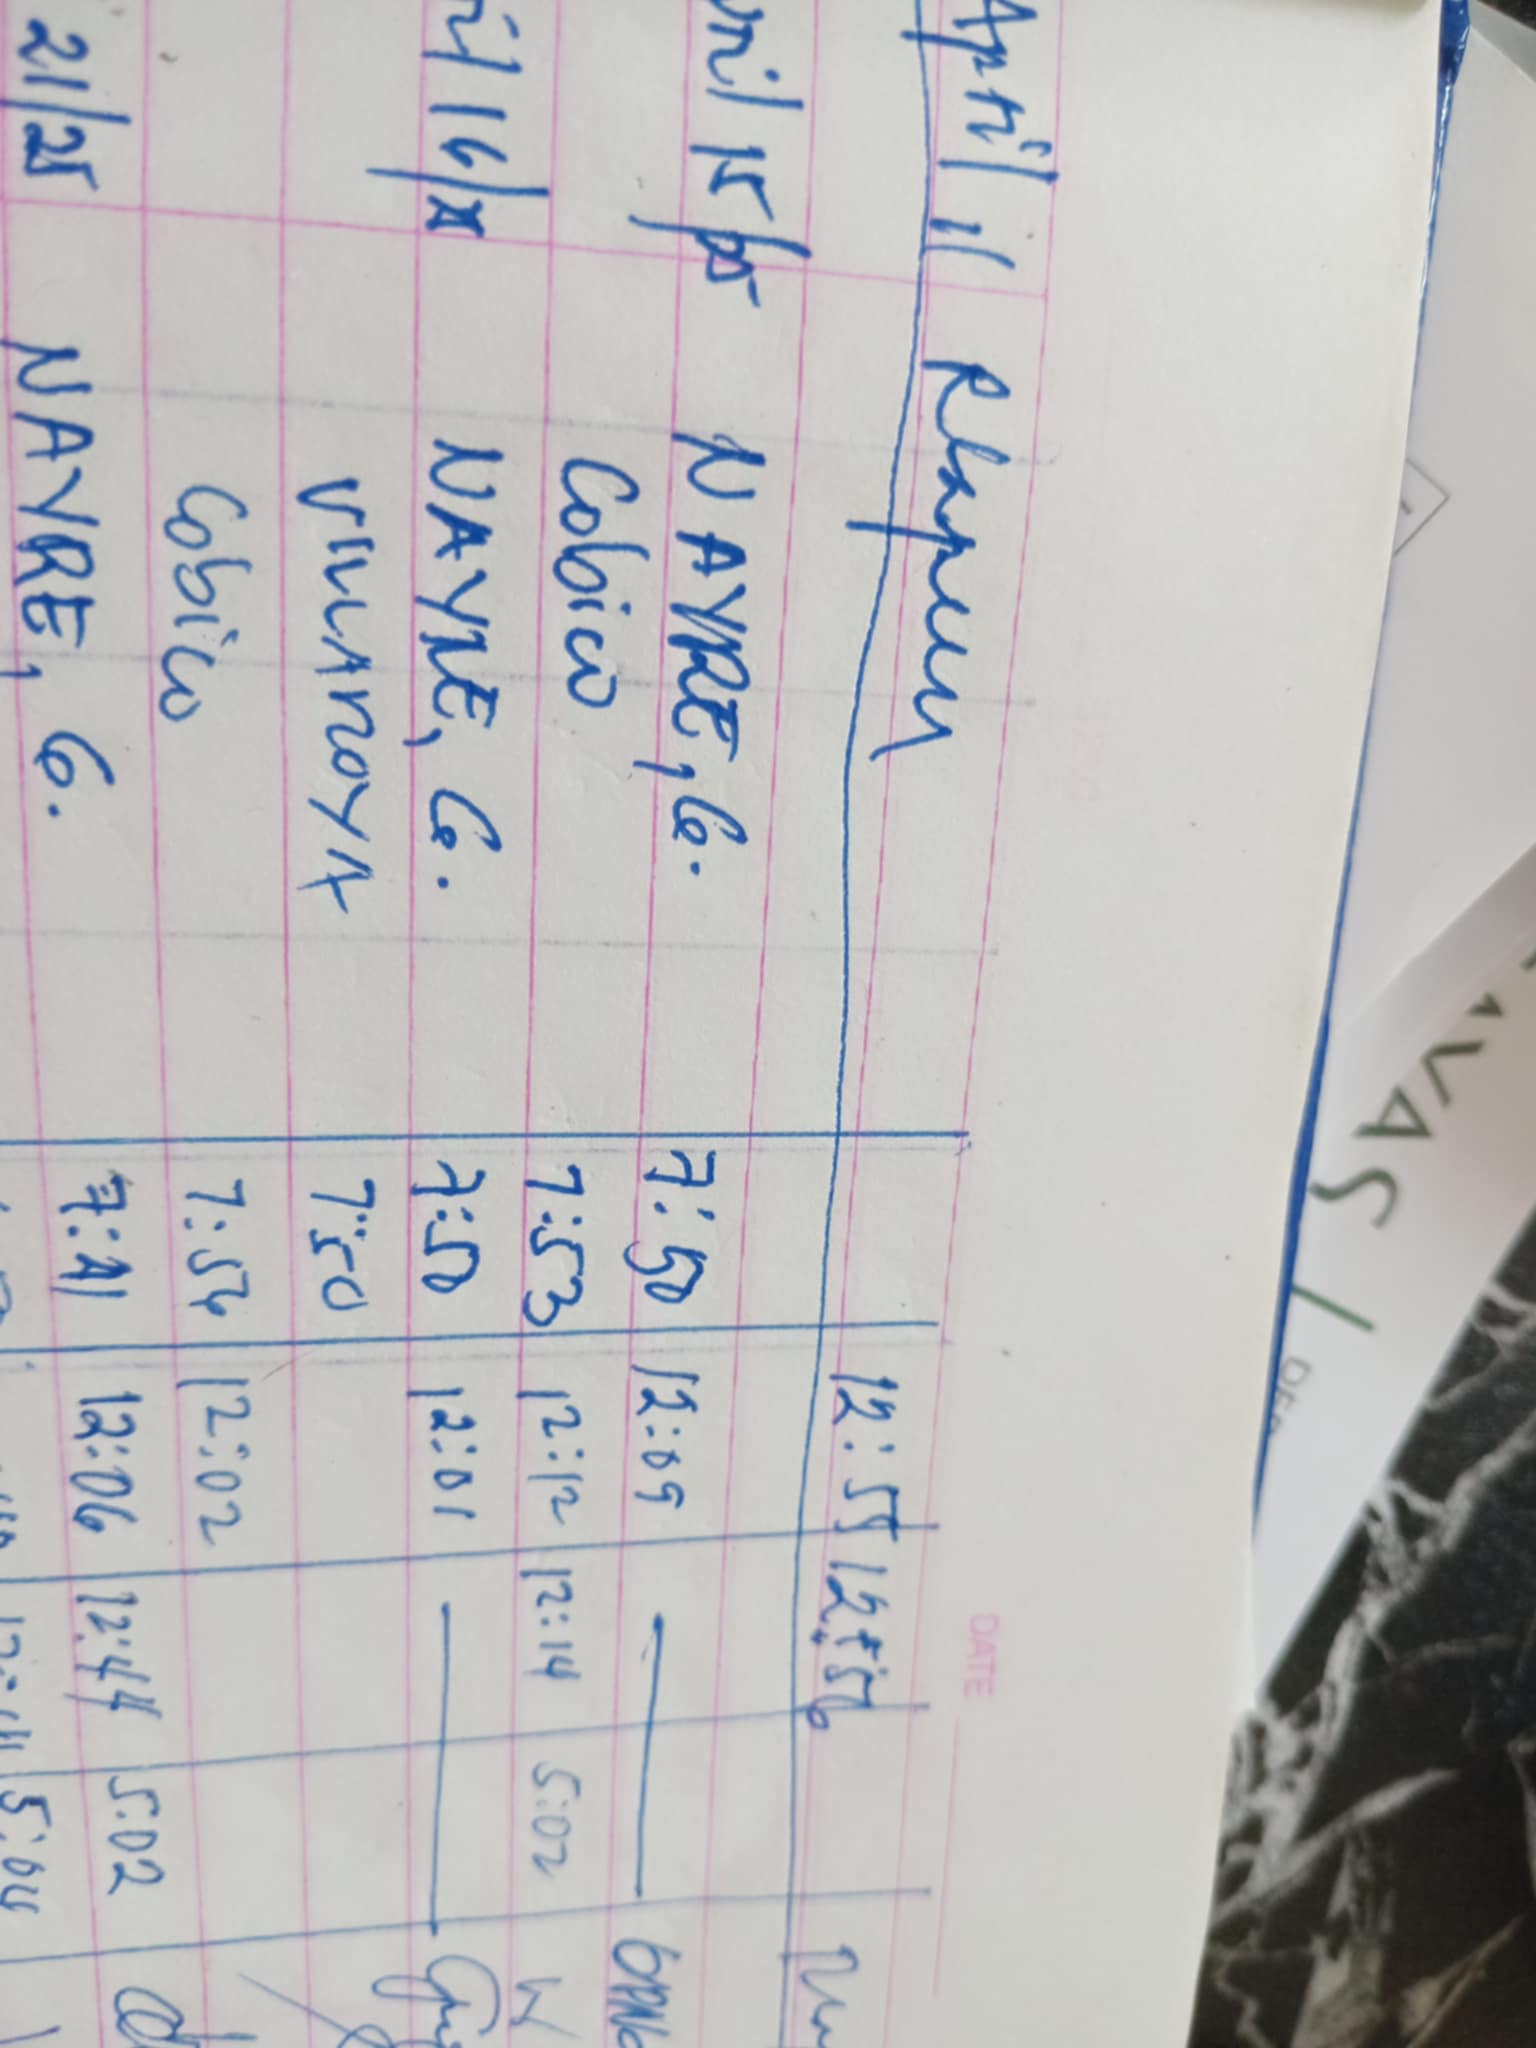 DATE
April 11 12:55 12:56
April 15/25 NAYRE, G. 7:50 12:09
Cobico 7:53 12:12 12:14 5:02
April 16/25 NAYRE, G. 7:50 12:01
VILLAROYA 7:50
Cobico 7:54 12:02
21/25 NAYRE, G. 7:41 12:06 12:44 5:02
VAS